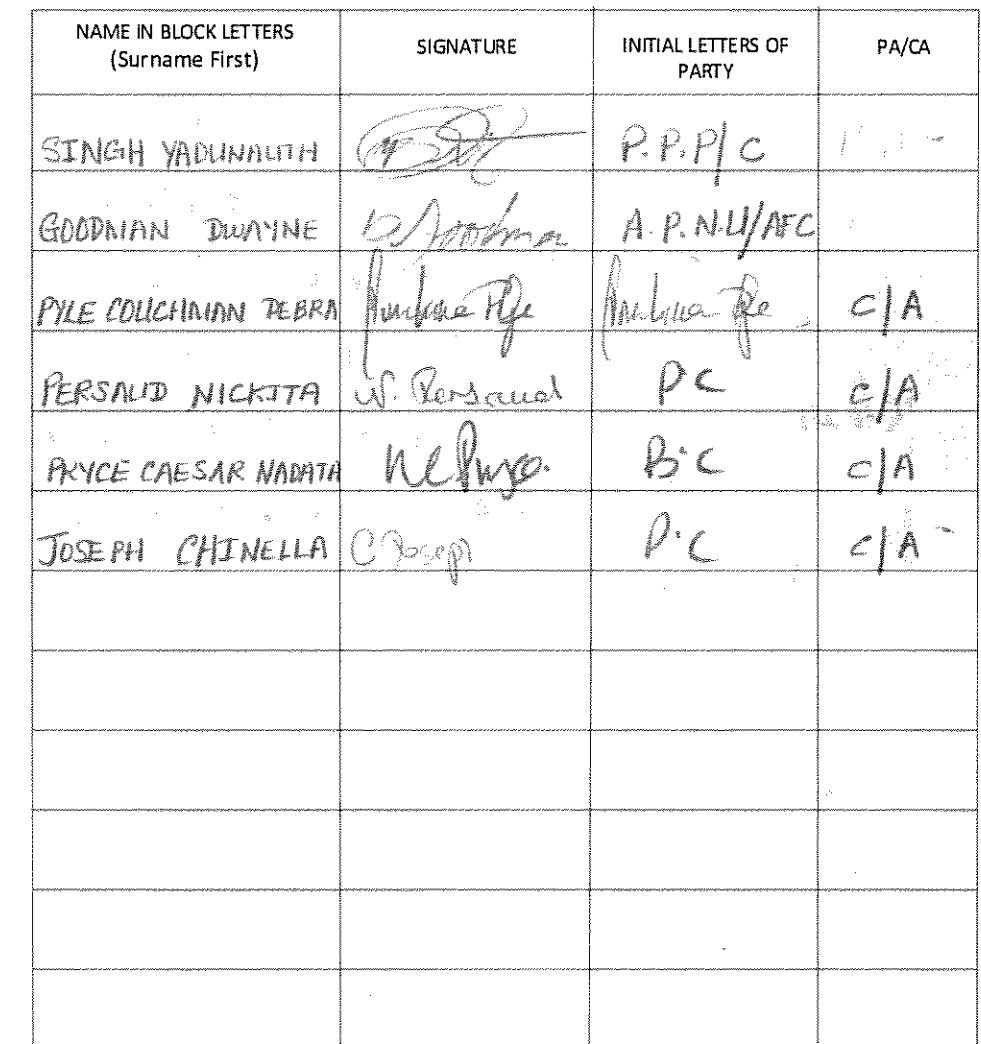 NAME IN BLOCK LETTERS SIGNATURE INITIAL LETTERS OF PA/CA
(Surname First) PARTY
SINGH YADUNAUTH P.P.P/C
GOODMAN DWAYNE D Goodman A.P.N.U/AFC
PYLE COUCHMAN DEBRA C/A
PERSAUD NICKITA N. Persaud PC C/A
PRYCE CAESAR NADATA B.C C/A
JOSEPH CHINELLA C Joseph P.C C/A